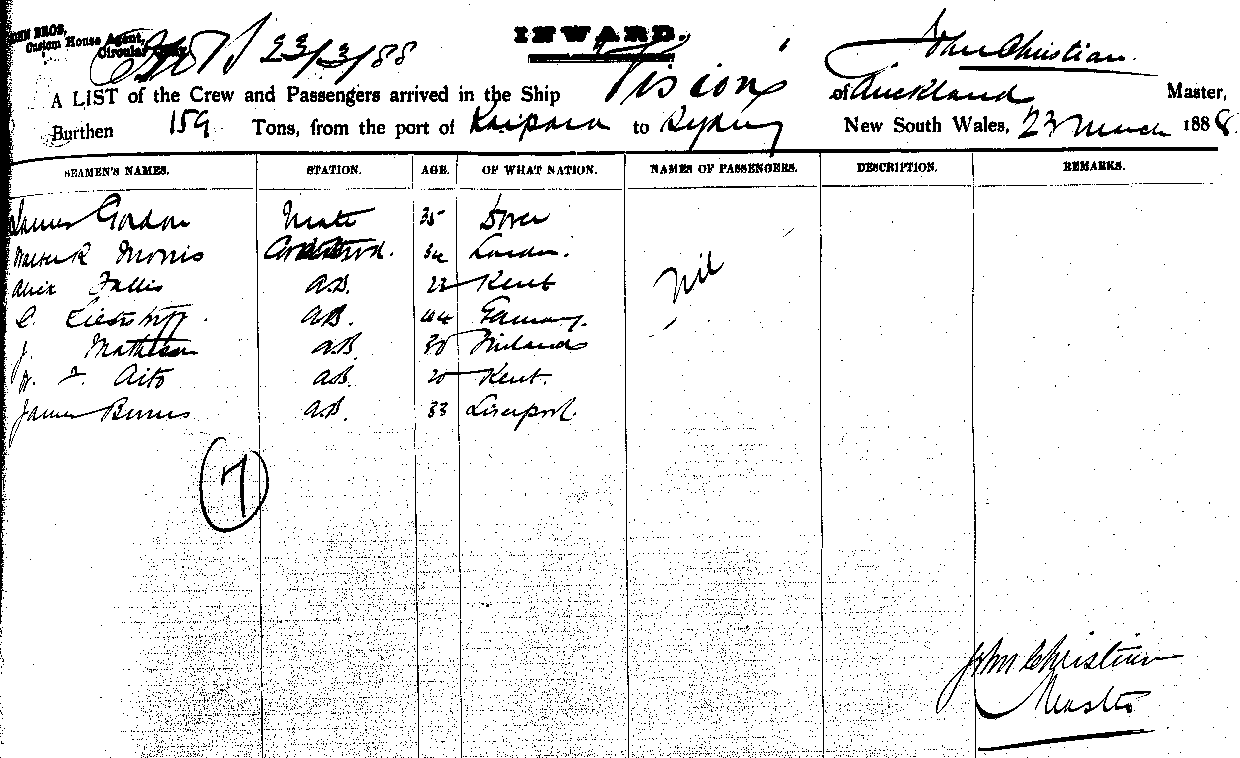 JOHN BROS,
Custom House Agent,
Circular Quay
23/3/88
INWARD.
John Christian
A LIST of the Crew and Passengers arrived in the Ship Vision of Auckland Master,
Burthen 159 Tons, from the port of Kaipara to Sydney New South Wales, 23 March 1888.
SEAMEN'S NAMES. STATION. AGE. OF WHAT NATION. NAMES OF PASSENGERS. DESCRIPTION. REMARKS.
James Gordon Mate 35 Dover
Morris 34 London.
Fallis AB. 22 Kent Nil
C. AB. 44 Germany.
J. Matheson AB. 30
Aito AB. 20 Kent.
James Burns AB. 33 Liverpool.
7
John Christian
Master